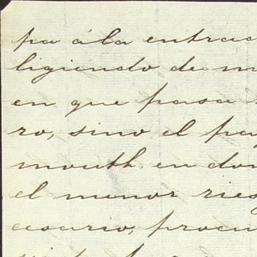 pa á la entrad
ligiendo de m
en que pasa
ro, sino el pa
mouth en don
el menor ries
cesario, procu